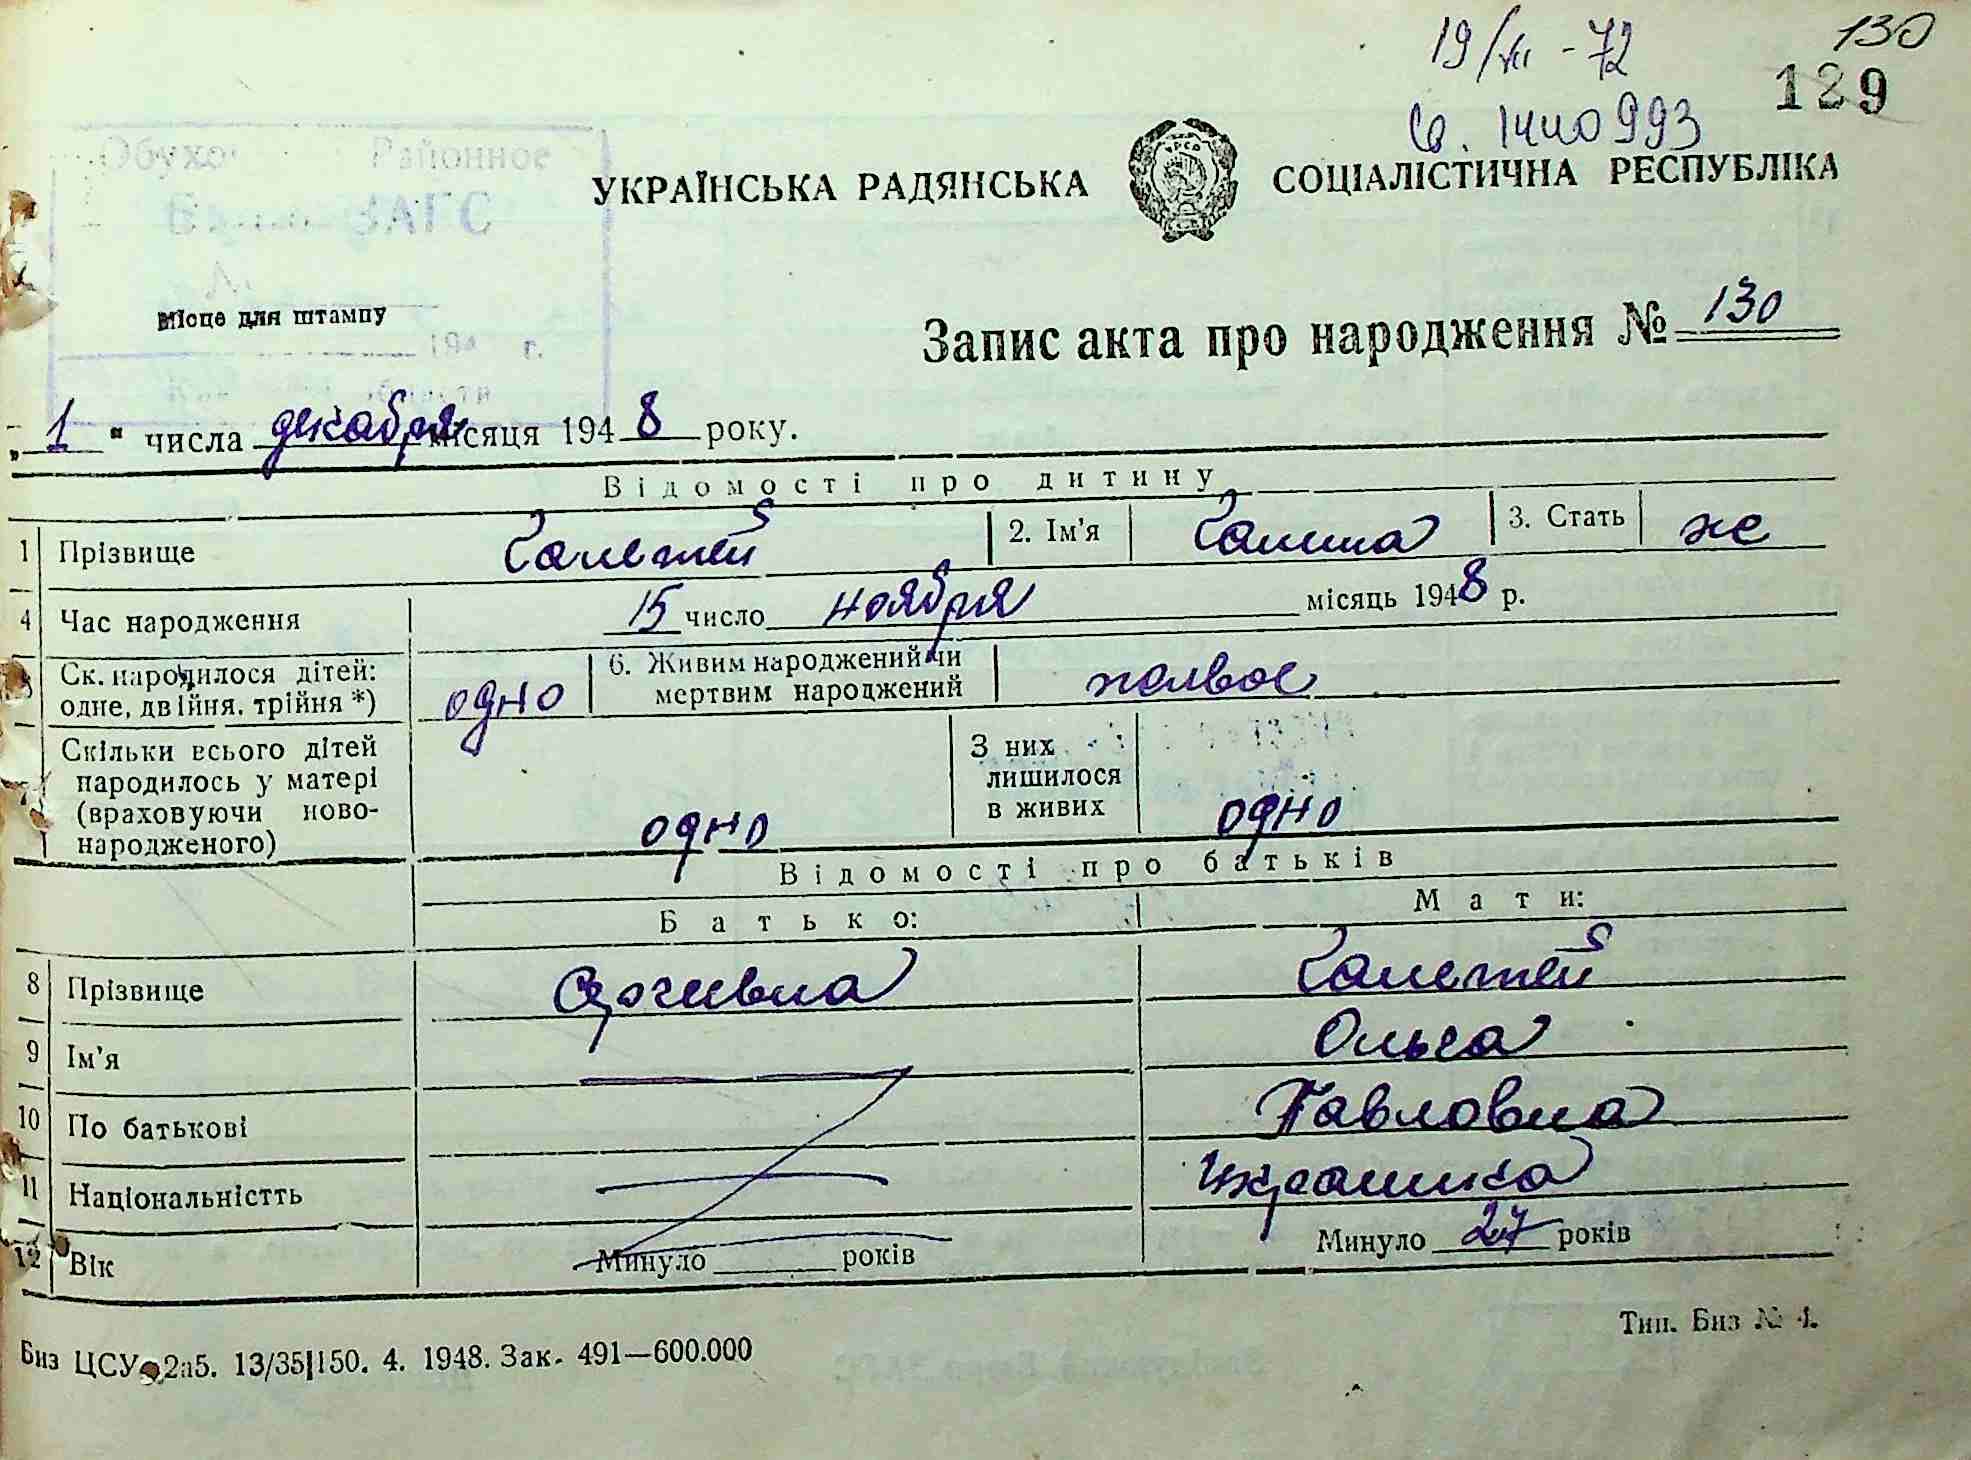 130
19/VII - 72
129
Св. 1440993
Районное
ЗАГС
УКРАЇНСЬКА РАДЯНСЬКА СОЦІАЛІСТИЧНА РЕСПУБЛІКА
Місце для штампу
194 г.
Запис акта про народження № 130
„ 1 " числа декабря місяця 1948 року.
Відомості про дитину
1 Прізвище Галетей 2. Ім'я Галина 3. Стать же
4 Час народження 15 число ноября місяць 1948 р.
Ск. народилося дітей: одне, двійня, трійня *) одно 6. Живим народжений чи мертвим народжений живое
Скільки всього дітей народилось у матері (враховуючи ново-народженого) одно З них лишилося в живих одно
Відомості про батьків
Батько: Мати:
8 Прізвище Сергеевна Галетей
9 Ім'я Ольга
10 По батькові Павловна
11 Національністть Украинка
12 Вік Минуло ____ років Минуло 27 років
Биз ЦСУ 2а5. 13/35|150. 4. 1948. Зак. 491—600.000
Тип. Биз № 4.